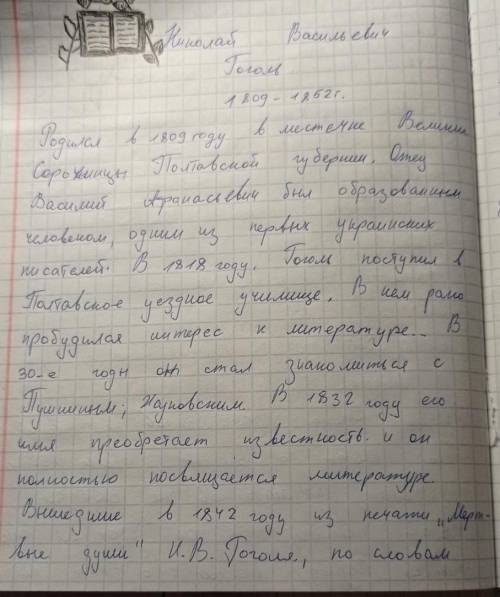 Николай Васильевич
Гоголь
1809-1852г.
Родился в 1809 году в местечке Великие
Сорочинцы Полтавской губернии. Отец
Василий Афанасьевич был образованным
человеком, одним из первых украинских
писателей. В 1818 году. Гоголь поступил в
Полтавское уездное училище. В нем рано
пробудился интерес к литературе... В
30-е годы он стал знакомиться с
Пушкиным; Жуковским. В 1832 году его
имя преобретает известность. и он
полностью посвящается литературе.
Вышедшие в 1842 году из печати „Мерт-
вые души" Н.В. Гоголя, по словам